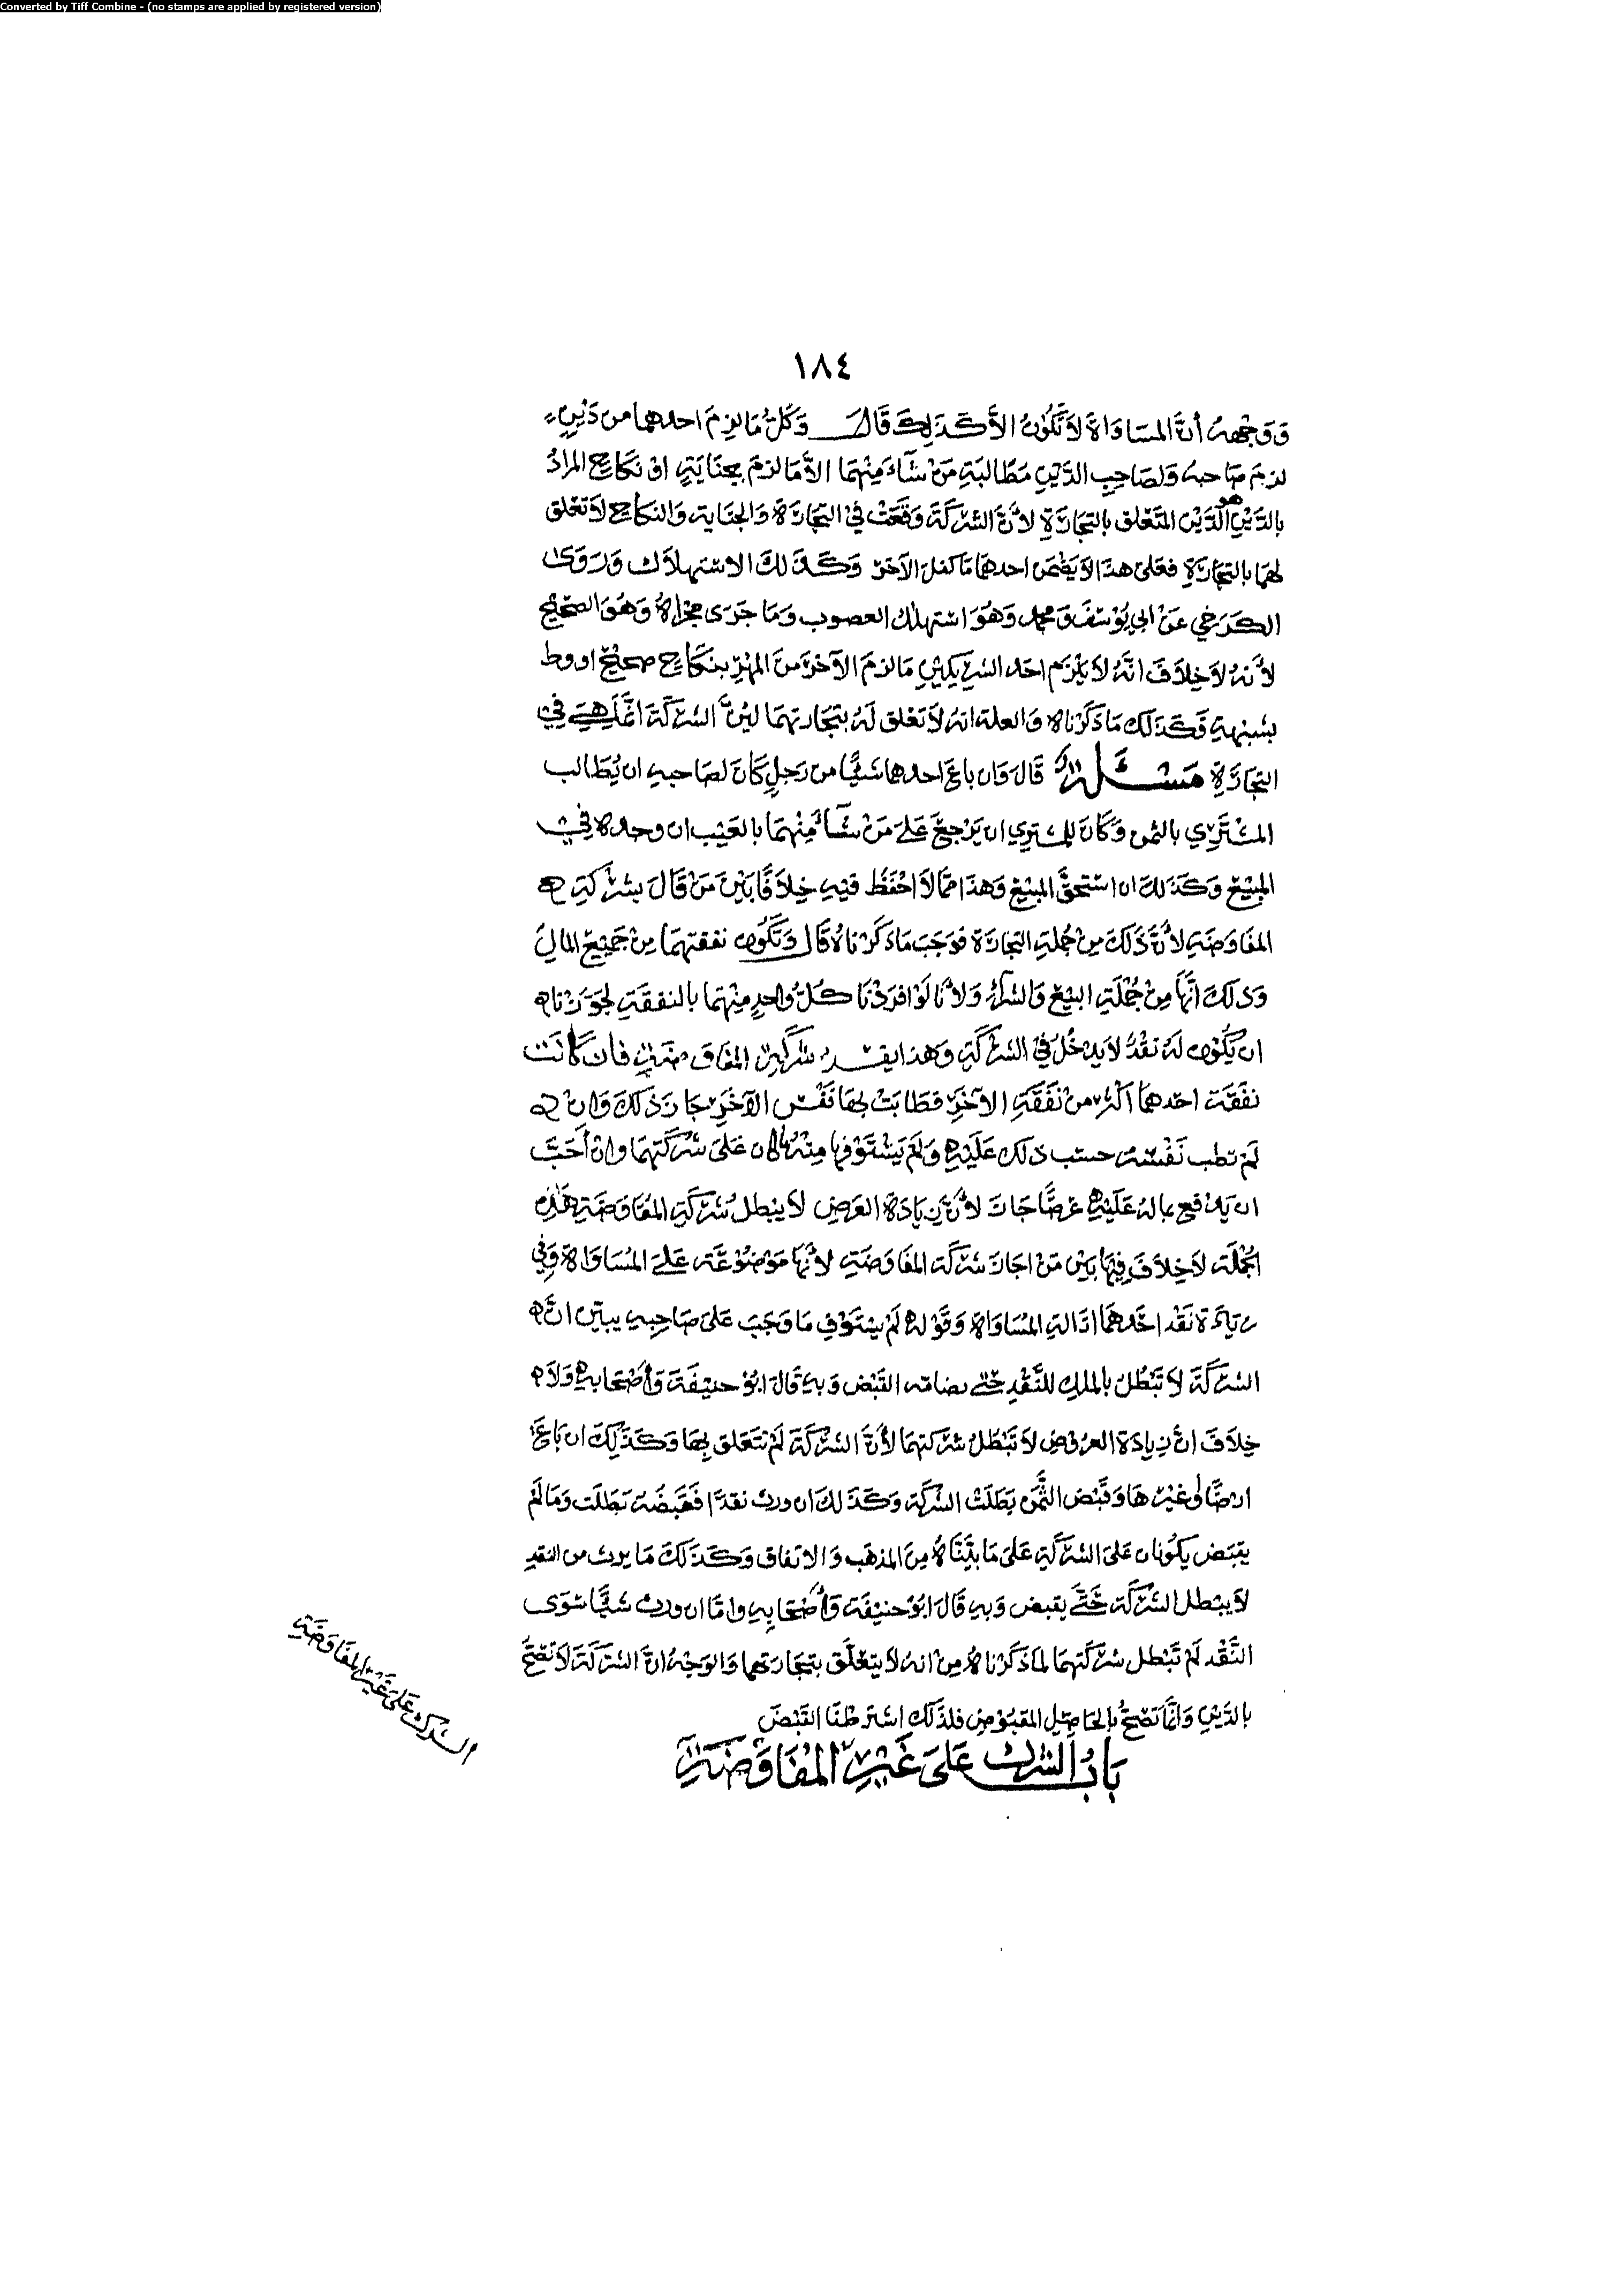 Converted by Tiff Combine - (no stamps are applied by registered version)
١٨٤
وَوَجْهه أنَّ المسَاوَاة لاَ تَكُونُ الاَّ كَذَلِكَ قَالَ وَكُلُّ مَا لزِمَ احدهما من دَيْنٍ
لزمَ صَاحبهُ وَلصَاحبِ الدَّيْنِ مطَالبَة مَنْ شَاءَ مِنْهمَا الاَّ مَا لزمَ بجنَايَةٍ اوْ نكَاحٍ المرَادُ
بالدَّيْنِ هو الدَّيْن المتَعَلق بالتجَارَةِ لأنَّ الشرْكَةَ وَقَعَتْ فِي التجَارَة وَالجنَاية وَالنكاح لاَ تعْلق
لهمَا بالتجَارَةِ فعَلى هذَا لاَ يَضْمَن احدهمَا مَا كفل الآخرَ وَكَذَلكَ الاسْتهلاَك وَرَوَى
الكَرْخي عَنْ ابي يُوْسُفَ وَمحمد وَهُوَ اسْتهلاك الغصوب وَمَا جَرَى مجْرَاهُ وَهُوَ الصَّحِيْح
لأنهُ لاَ خِلاَفَ انَّهُ لاَ يَلْزَم احد الشرِيكينِ مَا لزمَ الآخرَ منَ المهْرِ بنكَاحٍ صحِيْحٍ او وطٍ
بشبْهةٍ فَكَذَلكَ مَا ذكَرْنَاهُ وَالعلة انهُ لاَ تَعْلق لَهُ بتجَارتهمَا لأنَّ الشركَةَ انَّمَا هِيَ فِي
التجَارَةِ مَسْئَلة قَالَ وَان باعَ احدهما شَيْئًا من رَجلٍ كَانَ لصَاحبهِ ان يُطَالب
المشْتَرِي بالثمن وَكَانَ للمشتري ان يَرْجعَ عَلَى مَنْ شَاءَ مِنْهمَا بالعَيْب ان وجده فِي
المبِيْع وَكَذَلكَ ان اسْتحقَّ المبيْع وَهذَا ممَّا لاَ احْفَظُ فيهِ خِلاَفًا بَيْنَ مَنْ قَالَ بشرْكَةِ
المفَاوَضَةِ لأنَّ ذَلكَ مِنْ جُملةِ التجَارَة فوَجَبَ مَا ذكَرْنَاهُ قَال وَتَكُون نفقتهمَا مِنْ جَمِيْعِ المالِ
وَذلكَ انَّهَا مِنْ جُمْلَةِ البيْعِ وَالشرَاءِ وَلأنا لَوْ افْرَدْنَا كُلَّ وَاحدٍ مِنْهمَا بالنفقَةِ لجَوَّزْنَا
ان يَكُوْن لهُ نقْدٌ لاَ يدخُلُ فِي الشرْكَةِ وَهذا يفسد شرْكَة المفاوضَةِ فان كَانَت
نفَقَة احدهمَا اكْثر من نَفَقَةِ الآخَرِ فطَابَتْ بهَا نَفْس الآخَرِ جَازَ ذلكَ وَانْ
لَمْ تطب نَفْسه حسب ذلك عَلَيْهِ وَلَمْ يَسْتَوْفهَا مِنْهُ كان عَلَى شرْكَتهمَا وانْ أَحَبَّ
ان يدفع ماله عَلَيْهِ عرضًا جَازَ لأنَّ زيَادَةَ العَرَضِ لاَ يبطل شرْكَةَ المفَاوَضَةِ هَذِهِ
الجُمْلَة لاَ خِلاَفَ فِيْهَا بَيْن مَنْ اجَازَ شرْكَةَ المفَاوَضَةِ لأنَّهَا مَوْضُوْعَة عَلَى المُسَاوَاةِ وَفِي
زيَادَة نَقْد احَدهمَا ازَالة المُسَاوَاةِ وَقَوْلهُ لَمْ يسْتَوْفِ مَا وَجَبَ عَلَى صَاحِبهِ يبيّن انَّ
الشرْكَةَ لاَ تَبْطُلُ بالملكِ للنَّقْدِ حَتَّى القَبْض وَبهِ قَالَ ابُوْ حنيْفَةَ وَأَصْحَابهِ وَلاَ
خِلاَفَ انَّ زيادَة العرُوْضِ لاَ تَبْطُلُ شرْكَتهمَا لأنَّ الشرْكَةَ لَمْ تتَعَلق بهَا وَكَذَلِكَ ان بَاعَ
ارضًا او غَيْرهَا وَقَبْض الثَّمَنَ بَطَلَتْ الشرْكَة وَكَذَلكَ ان ورث نقدًا فَقَبَضَهُ بَطَلَت وَمَا لَمْ
يقبَض يكُونَان عَلَى الشرْكَةِ عَلَى مَا بَيَّنَّاهُ مِنَ المذهَب وَالاتفاق وَكَذَلكَ مَا يرث من النقدِ
لاَ يبْطل الشرْكَة حَتَّى يقبض وَبهِ قَالَ ابُوْ حنيْفَة وَأَصْحَابهِ وامَّا ان ورث شَيْئًا سوَى
النَّقْد لَمْ تَبْطل شرْكَتهمَا لمَا ذكَرْنَاهُ مِنْ انهُ لاَ يتعَلَّق بتجَارَتهما وَالوَجْهُ انَّ الشرْكَةَ لاَ تَصِحُّ
بالدَّيْنِ وَانَّمَا تصِحُّ بالحَاصِلِ المقبُوْضِ فلذَلكَ اشترَطْنَا القَبْضَ
بَابُ الشرك عَلَى غَيْرِ المُفَاوَضَةِ
الشرك عَلَى غَيْر المفَاوَضَةِ